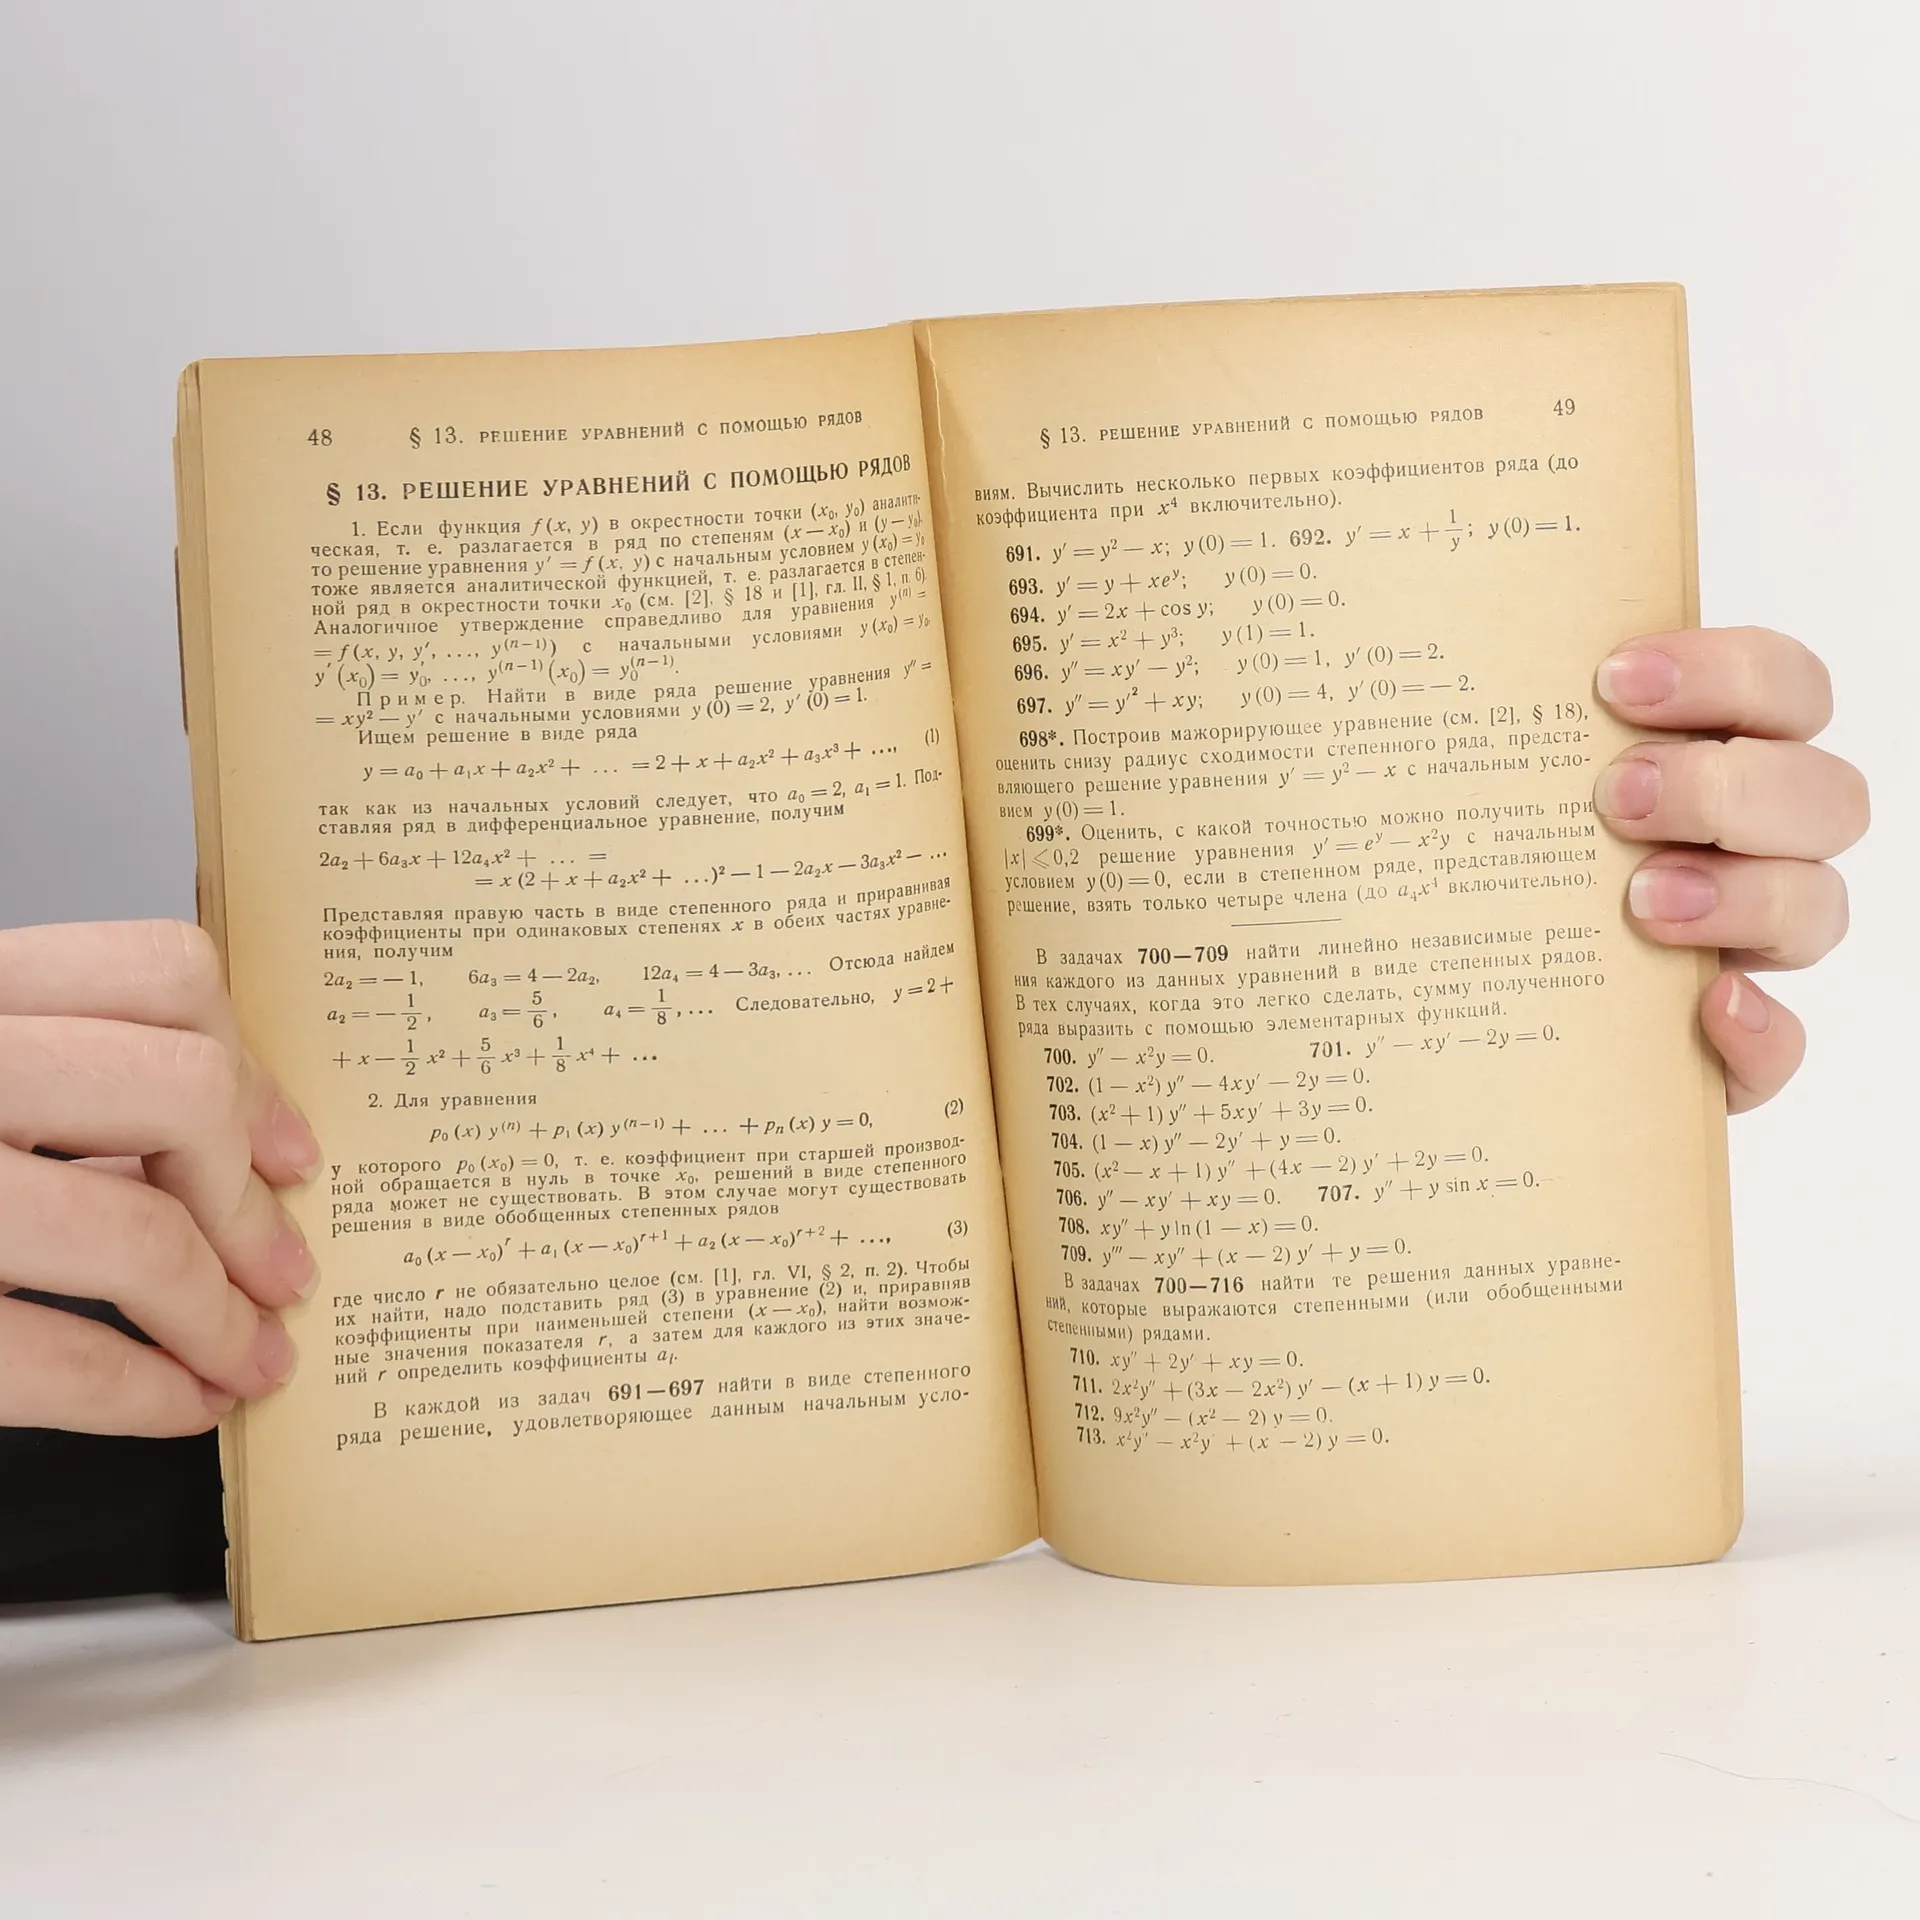 48 § 13. РЕШЕНИЕ УРАВНЕНИЙ С ПОМОЩЬЮ РЯДОВ
§ 13. РЕШЕНИЕ УРАВНЕНИЙ С ПОМОЩЬЮ РЯДОВ
1. Если функция f (x, y) в окрестности точки (x₀, y₀) аналити-
ческая, т. е. разлагается в ряд по степеням (x — x₀) и (y — y₀),
то решение уравнения y′ = f (x, y) с начальным условием y (x₀) = y₀
тоже является аналитической функцией, т. е. разлагается в степен-
ной ряд в окрестности точки x₀ (см. [2], § 18 и [1], гл. II, § 1, п. 6).
Аналогичное утверждение справедливо для уравнения y⁽ⁿ⁾ =
= f (x, y, y′, ..., y⁽ⁿ⁻¹⁾) с начальными условиями y (x₀) = y₀,
y′ (x₀) = y′₀, ..., y⁽ⁿ⁻¹⁾ (x₀) = y₀⁽ⁿ⁻¹⁾.
Пример. Найти в виде ряда решение уравнения y″ =
= xy² — y′ с начальными условиями y (0) = 2, y′ (0) = 1.
Ищем решение в виде ряда
y = a₀ + a₁x + a₂x² + ... = 2 + x + a₂x² + a₃x³ + ..., (1)
так как из начальных условий следует, что a₀ = 2, a₁ = 1. Под-
ставляя ряд в дифференциальное уравнение, получим
2a₂ + 6a₃x + 12a₄x² + ... =
= x (2 + x + a₂x² + ...)² — 1 — 2a₂x — 3a₃x² — ...
Представляя правую часть в виде степенного ряда и приравнивая
коэффициенты при одинаковых степенях x в обеих частях уравне-
ния, получим
2a₂ = — 1, 6a₃ = 4 — 2a₂, 12a₄ = 4 — 3a₃, ... Отсюда найдем
a₂ = — 1/2, a₃ = 5/6, a₄ = 1/8, ... Следовательно, y = 2 +
+ x — 1/2 x² + 5/6 x³ + 1/8 x⁴ + ...
2. Для уравнения
p₀ (x) y⁽ⁿ⁾ + p₁ (x) y⁽ⁿ⁻¹⁾ + ... + pₙ (x) y = 0, (2)
у которого p₀ (x₀) = 0, т. е. коэффициент при старшей производ-
ной обращается в нуль в точке x₀, решений в виде степенного
ряда может не существовать. В этом случае могут существовать
решения в виде обобщенных степенных рядов
a₀ (x — x₀)ʳ + a₁ (x — x₀)ʳ⁺¹ + a₂ (x — x₀)ʳ⁺² + ..., (3)
где число r не обязательно целое (см. [1], гл. VI, § 2, п. 2). Чтобы
их найти, надо подставить ряд (3) в уравнение (2) и, приравняв
коэффициенты при наименьшей степени (x — x₀), найти возмож-
ные значения показателя r, а затем для каждого из этих значе-
ний r определить коэффициенты aᵢ.
В каждой из задач 691—697 найти в виде степенного
ряда решение, удовлетворяющее данным начальным усло-
§ 13. РЕШЕНИЕ УРАВНЕНИЙ С ПОМОЩЬЮ РЯДОВ 49
виям. Вычислить несколько первых коэффициентов ряда (до
коэффициента при x⁴ включительно).
691. y′ = y² — x; y (0) = 1. 692. y′ = x + 1/y; y (0) = 1.
693. y′ = y + xeʸ; y (0) = 0.
694. y′ = 2x + cos y; y (0) = 0.
695. y′ = x² + y³; y (1) = 1.
696. y″ = xy′ — y²; y (0) = 1, y′ (0) = 2.
697. y″ = y′² + xy; y (0) = 4, y′ (0) = — 2.
698*. Построив мажорирующее уравнение (см. [2], § 18),
оценить снизу радиус сходимости степенного ряда, предста-
вляющего решение уравнения y′ = y² — x с начальным усло-
вием y (0) = 1.
699*. Оценить, с какой точностью можно получить при
|x| ⩽ 0,2 решение уравнения y′ = eʸ — x²y с начальным
условием y (0) = 0, если в степенном ряде, представляющем
решение, взять только четыре члена (до a₄x⁴ включительно).
В задачах 700—709 найти линейно независимые реше-
ния каждого из данных уравнений в виде степенных рядов.
В тех случаях, когда это легко сделать, сумму полученного
ряда выразить с помощью элементарных функций.
700. y″ — x²y = 0. 701. y″ — xy′ — 2y = 0.
702. (1 — x²) y″ — 4xy′ — 2y = 0.
703. (x² + 1) y″ + 5xy′ + 3y = 0.
704. (1 — x) y″ — 2y′ + y = 0.
705. (x² — x + 1) y″ + (4x — 2) y′ + 2y = 0.
706. y″ — xy′ + xy = 0. 707. y″ + y sin x = 0.
708. xy″ + y ln (1 — x) = 0.
709. y‴ — xy″ + (x — 2) y′ + y = 0.
В задачах 700—716 найти те решения данных уравне-
ний, которые выражаются степенными (или обобщенными
степенными) рядами.
710. xy″ + 2y′ + xy = 0.
711. 2x²y″ + (3x — 2x²) y′ — (x + 1) y = 0.
712. 9x²y″ — (x² — 2) y = 0.
713. x²y″ — x²y′ + (x — 2) y = 0.